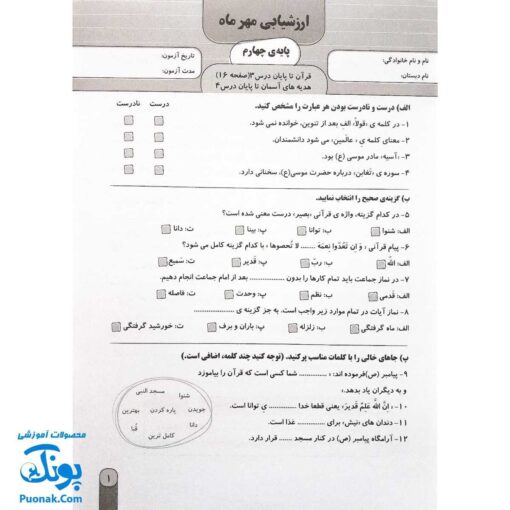 ارزشیابی مهر ماه
پایه‌ی چهارم
نام و نام خانوادگی:
نام دبستان:
تاریخ آزمون:
مدت آزمون:
قرآن تا پایان درس ۳ (صفحه ۱۶)
هدیه های آسمان تا پایان درس ۴
الف) درست و نادرست بودن هر عبارت را مشخص کنید.
درست نادرست
۱- در کلمه ی «قولاً» الف بعد از تنوین، خوانده نمی شود.
۲- معنای کلمه ی «عالَمین» می شود دانشمندان.
۳- «آسیه» مادر موسی (ع) بود.
۴- سوره ی «تغابن» درباره حضرت موسی(ع)، سخنانی دارد.
ب) گزینه‌ی صحیح را انتخاب نمایید.
۵- در کدام گزینه، واژه ی قرآنی «بصیر» درست معنی شده است؟
الف: شنوا ب: توانا پ: بینا ت: دانا
۶- پیام قرآنی « وَ اِن تَعُدّوا نِعمَهَ ........ لا تُحصوها » با کدام گزینه کامل می شود؟
الف: اللّه ب: ربّ پ: قَدیر ت: سَمیع
۷- در نماز جماعت باید تمام کارها را بدون ............ بعد از امام جماعت انجام دهیم.
الف: قدمی ب: نظم پ: وحدت ت: فاصله
۸- نماز آیات در تمام موارد زیر واجب است. به جز گزینه ی ............
الف: ماه گرفتگی ب: زلزله پ: باران و برف ت: خورشید گرفتگی
پ) جاهای خالی را با کلمات مناسب پر کنید. (توجه کنید چند کلمه، اضافی است.)
۹- پیامبر (ص)فرموده اند: « ............ شما کسی است که قرآن را بیاموزد
و به دیگران یاد بدهد.»
۱۰- «اِنَّ اللّهَ عَلِمٌ قَدیرٌ» یعنی قطعا خدا ............ ی توانا است.
۱۱- دندان های «نیش» برای ............ غذا است.
۱۲- آرامگاه پیامبر (ص) در کنار مسجد ....... قرار دارد.
شنوا مسجد النبی
جویدن پاره کردن بهترین
دانا قُبا
کامل ترین
۱
محصولات آموزشی
پونک
Puonak.Com